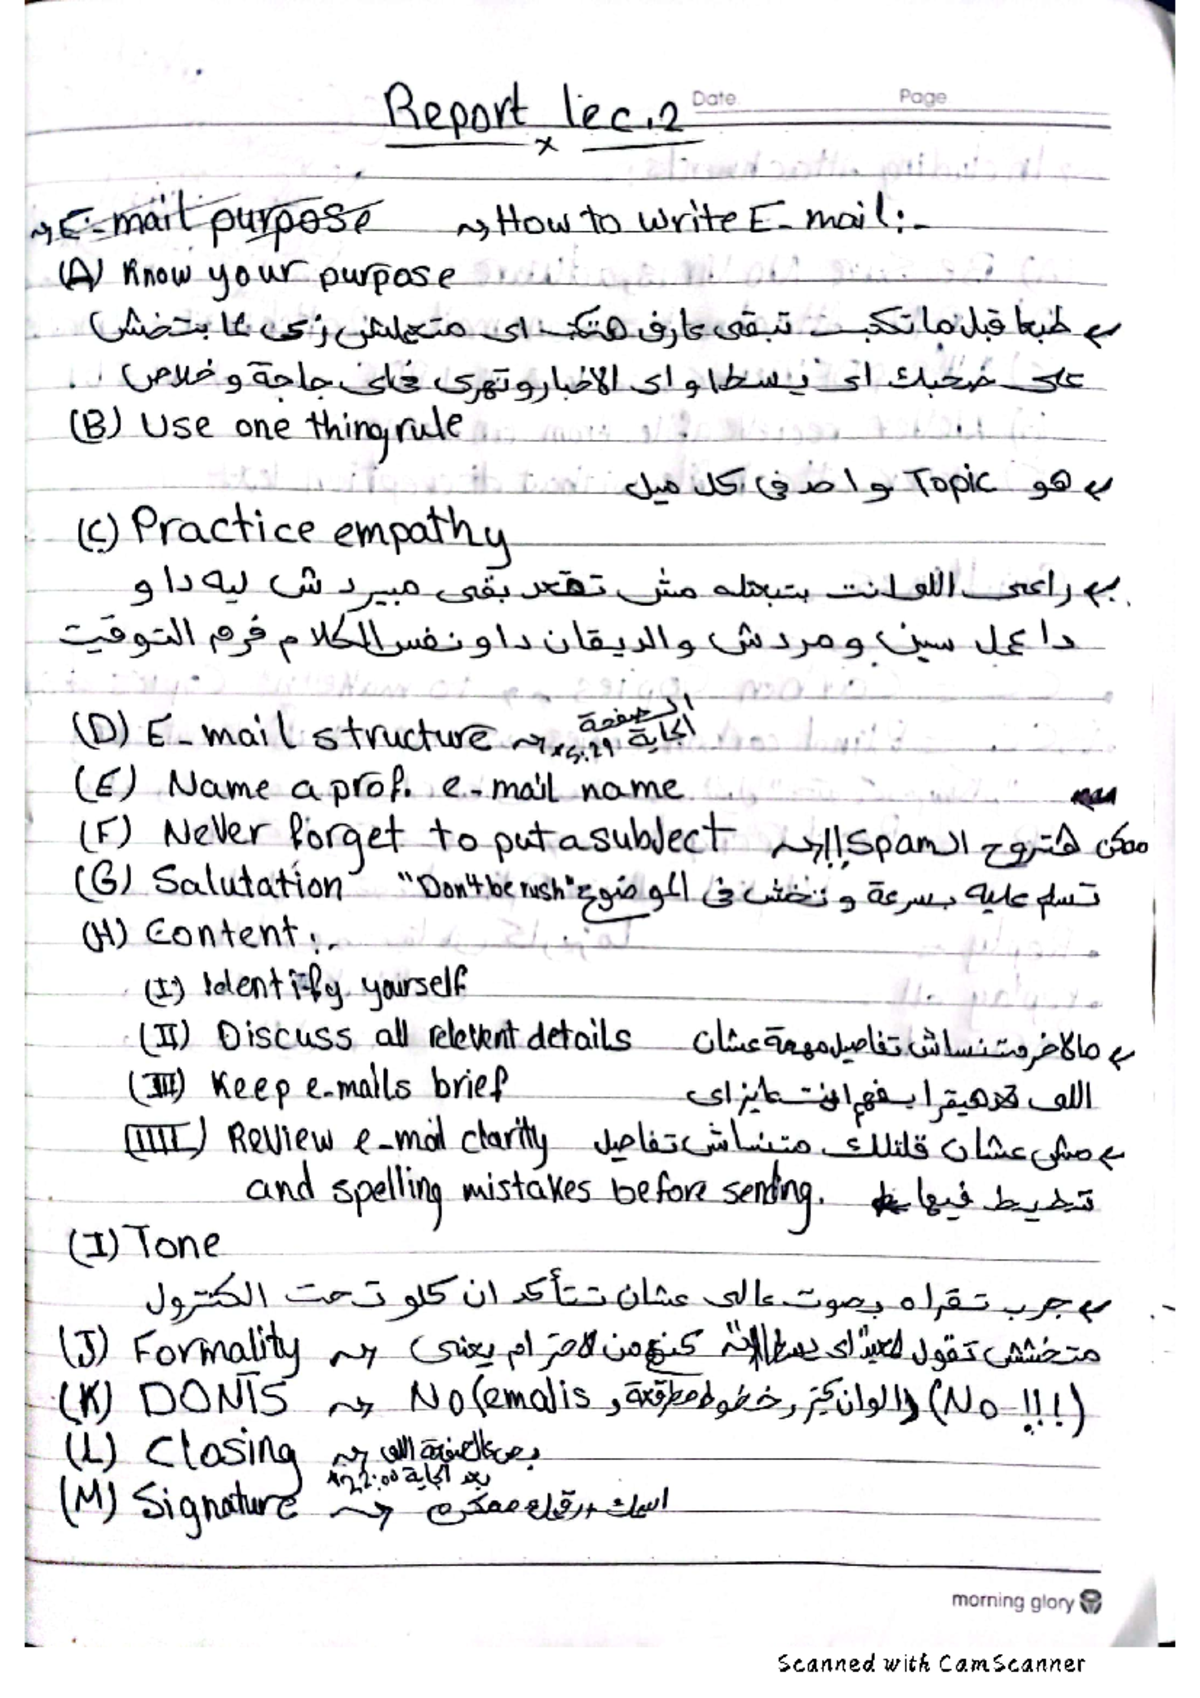 Date Page
Report lec.2
E-mail purpose How to write E-mail:-
(A) Know your purpose
طبعا قبل ما تكتب تبقى عارف هتكتب اى متعملش زى ما بتخش
على صحبك اى يسطا واى الاخبار وتهرى فاى حاجة وخلاص.
(B) Use one thing rule
هو Topic واحد فى كل ميل
(C) Practice empathy
راعى اللوانت بتبعتله مش تقعد بقى مبيردش ليه دا و
دا عمل سين ومردش والديقان دا ونفس الكلام فرم التوقيت
(D) E-mail structure الصفحة
الجاية 5:29
(E) Name a prof. e-mail name
(F) Never forget to put a subject ممكن هتروح الـ Spam!!
(G) Salutation "Don't be rush" تسلم عليه بسرعة وتخش فى الموضوع
(H) Content:-
(I) Identify yourself
(II) Discuss all relevent details مالاخر متنساش تفاصيل مهمة عشان
(III) Keep e-mails brief اللى هيقرا يفهم انت عايز اى
(IIII) Review e-mail clarity مش عشان قلتلك متنساش تفاصيل
and spelling mistakes before sending. تطيط فيها
(I) Tone
جرب تقراه بصوت عالى عشان تتأكد ان كلو تحت الكنترول
(J) Formality متخشش تقول اى يسطا كنوع من الاحترام يعنى
(K) DON'TS No (emalis و خطوط و الوان كتير) (No !!!)
(L) Closing بص عالصفحة اللى
بعد الجاية 22:00
(M) Signature اسمك ورقمك ممكن
morning glory
Scanned with CamScanner